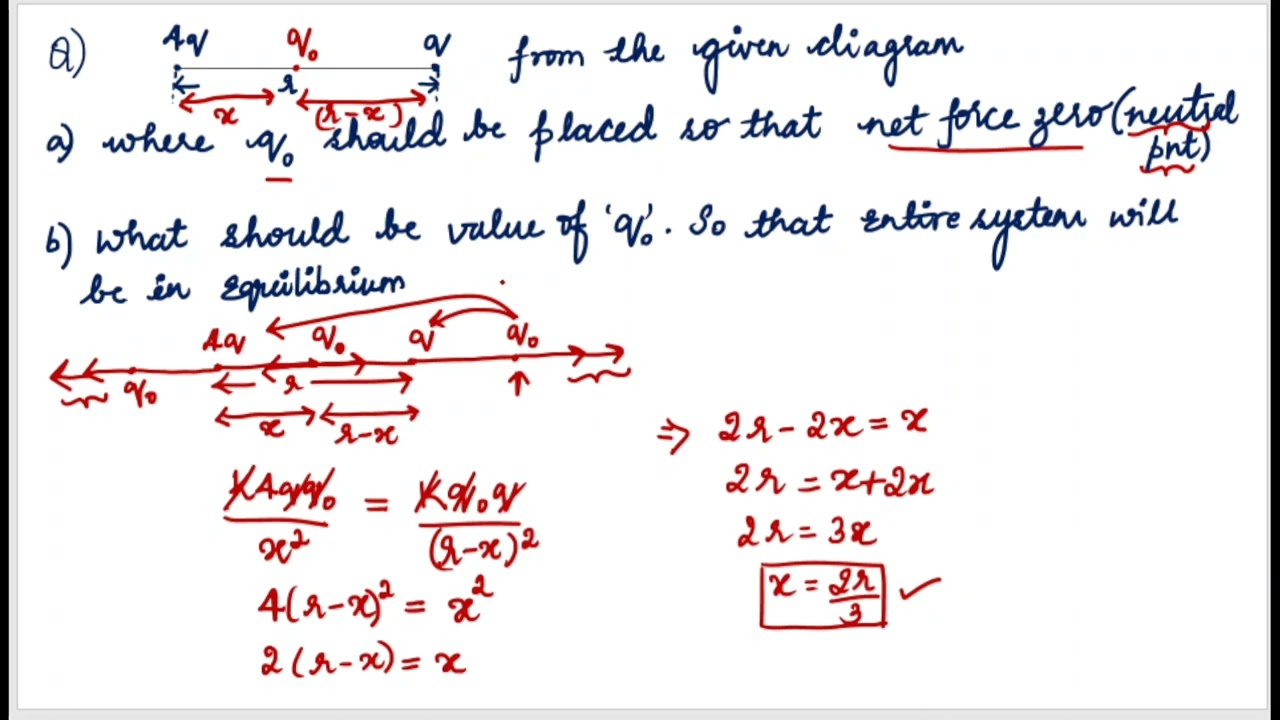 Q) 4q q₀ q from the given diagram
r
x (r-x)
a) where q₀ should be placed so that net force zero (neutral
pnt)
b) what should be value of 'q₀'. So that entire system will
be in Equilibrium
4q q₀ q q₀
q₀ r
x r-x
K4qq₀/x² = Kq₀q/(r-x)²
4(r-x)² = x²
2(r-x) = x
⇒ 2r - 2x = x
2r = x+2x
2r = 3x
x = 2r/3 ✓